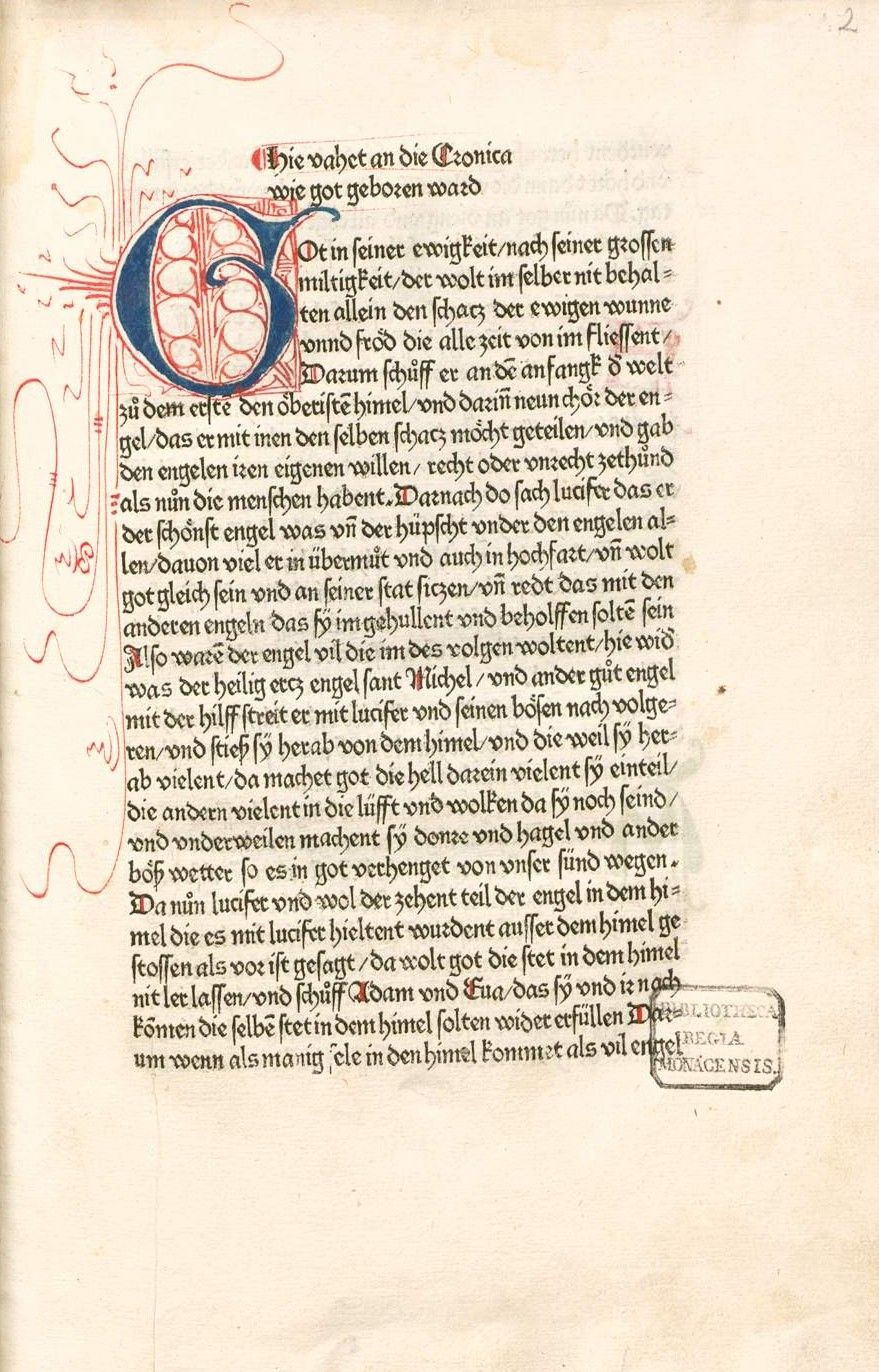 2
Hie vahet an die Cronica
wie got geboren ward
GOt in seiner ewigkeit/nach seiner grossen
miltigkeit/der wolt im selber nit behal⸗
ten allein den schacz der ewigen wunne
vnnd fröd die alle zeit von im fliessent/
Darum schůff er an dē anfangk d̄ welt
zů dem erstē den öberistē himel/vnd dariñ neun chör der en⸗
gel/das er mit inen den selben schacz möcht geteilen/vnd gab
den engelen iren eigenen willen/ recht oder vnrecht zethůnd
als nůn die menschen habent. Darnach do sach lucifer das er
der schönst engel was vñ der hüpscht vnder den engelen al⸗
len/dauon viel er in übermůt vnd auch in hochfart/vñ wolt
got gleich sein vnd an seiner stat siczen/vñ redt das mit den
anderen engeln das sÿ im gehullent vnd beholffen soltē sein
Also warē der engel vil die im des volgen woltent/hie wid̄
was der heilig ercz engel sant Michel/vnd ander gůt engel
mit der hilff streit er mit lucifer vnd seinen bösen nach volge⸗
ren/vnd stieß sÿ herab von dem himel/vnd die weil sÿ her⸗
ab vielent/da machet got die hell darein vielent sÿ einteil/
die andern vielent in die lüfft vnd wolken da sÿ noch seind/
vnd vnderweilen machent sÿ donre vnd hagel vnd ander
böß wetter so es in got verhenget von vnser sünd wegen.
Da nůn lucifer vnd wol der zehent teil der engel in dem hi⸗
mel die es mit lucifer hieltent wurdent ausser dem himel ge
stossen als vor ist gesagt/da wolt got die stet in dem himel
nit ler lassen/vnd schůff Adam vnd Eua/das sÿ vnd ir nach
kōmen die selbē stet in dem himel solten wider erfüllen Dar⸗
um wenn als manig sele in den himel kommet als vil engel
BIBLIOTHECA
REGIA
MONACENSIS.